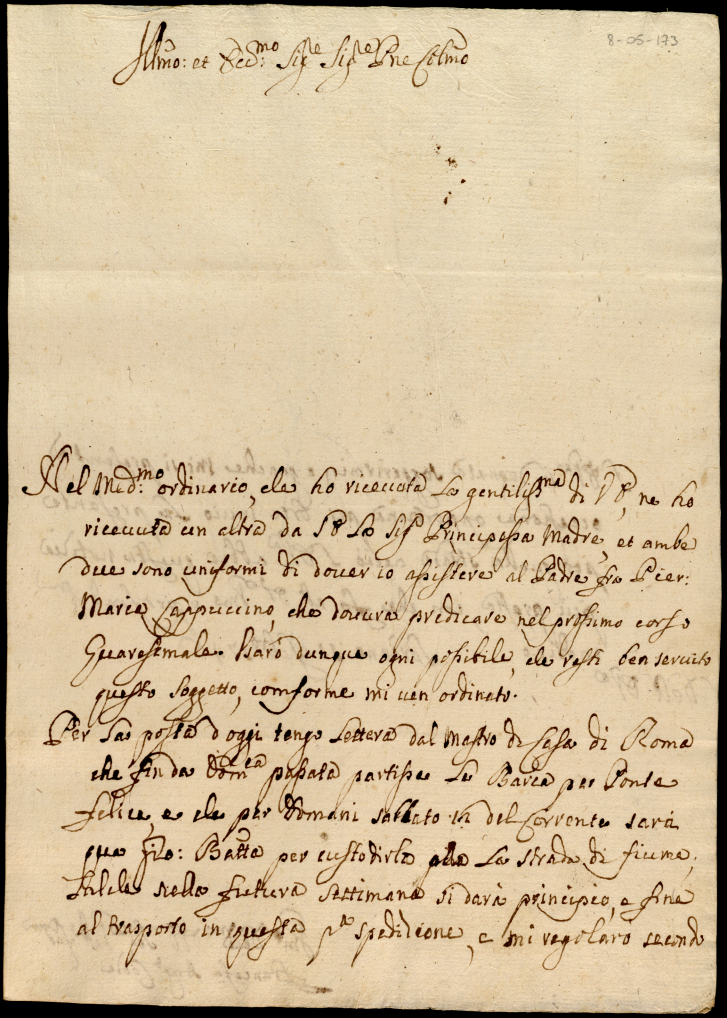 8-05-173
Illmo: et Ecc:mo Sigre Sigre Pne Colmo
Nel Med:mo ordinario, che ho ricevuta la gentilissma di V E, ne ho
ricevuta un altra da S E la Sigra Principessa Madre, et ambe
due sono uniformi di dover io assistere al Padre fra Pier:
Maria Cappuccino, che dovrà predicare nel prossimo corso
Quaresimale. Usarò dunque ogni possibile, che resti ben servito
questo soggetto, comforme mi vien ordinato.
Per la posta d'oggi tengo lettera dal Mastro di Casa di Roma
che fin da Domca passata partisse la Barca per Ponte
felice, e che per domani sabbato del Corrente sarà
qua Gio: Batta per custodirla la strada di fiume,
nella futura settimana si darà principio, e fine
al trasporto in questa pa spedizione, e mi regolarò secondo